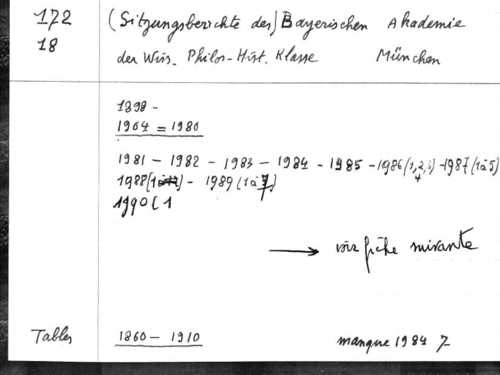 172 (Sitzungsberichte der) Bayerischen Akademie
18 der Wiss. Philos-Hist. Klasse München
1898 -
1904 = 1980
1981 - 1982 - 1983 - 1984 - 1985 - 1986 (1, 2, - 1987 (1 à 5)
1988 - 1989 (1 à 7)
1990 ( 1
→ voir fiche suivante
Tables 1860 - 1910 manque 1984 7